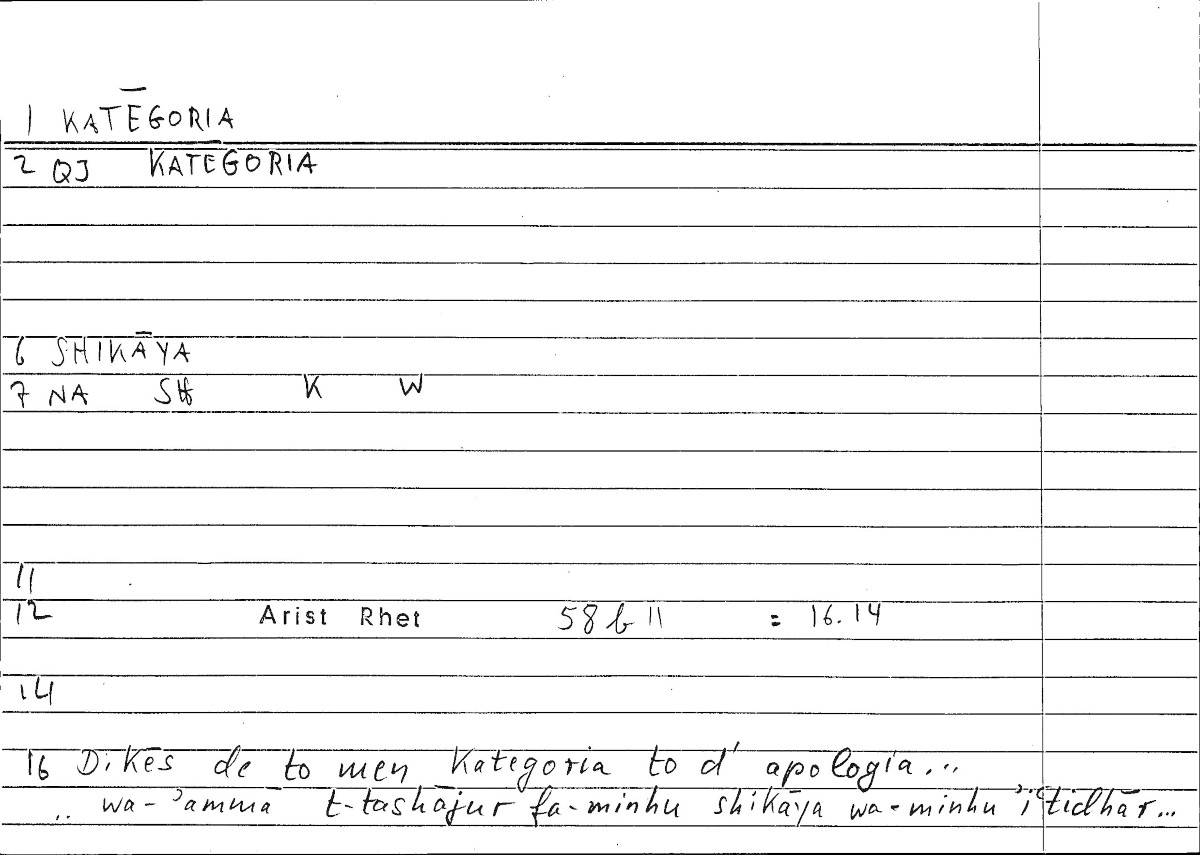 1 KATĒGORIA
2 QJ KATEGORIA
6 SHIKĀYA
7 NA SH K W
11
12 Arist Rhet 58b11 = 16.14
14
16 Dikēs de to men Kategoria to d' apologia...
.. wa-ʾammā t-tashājur fa-minhu shikāya wa-minhu ʾiʿtidhār...